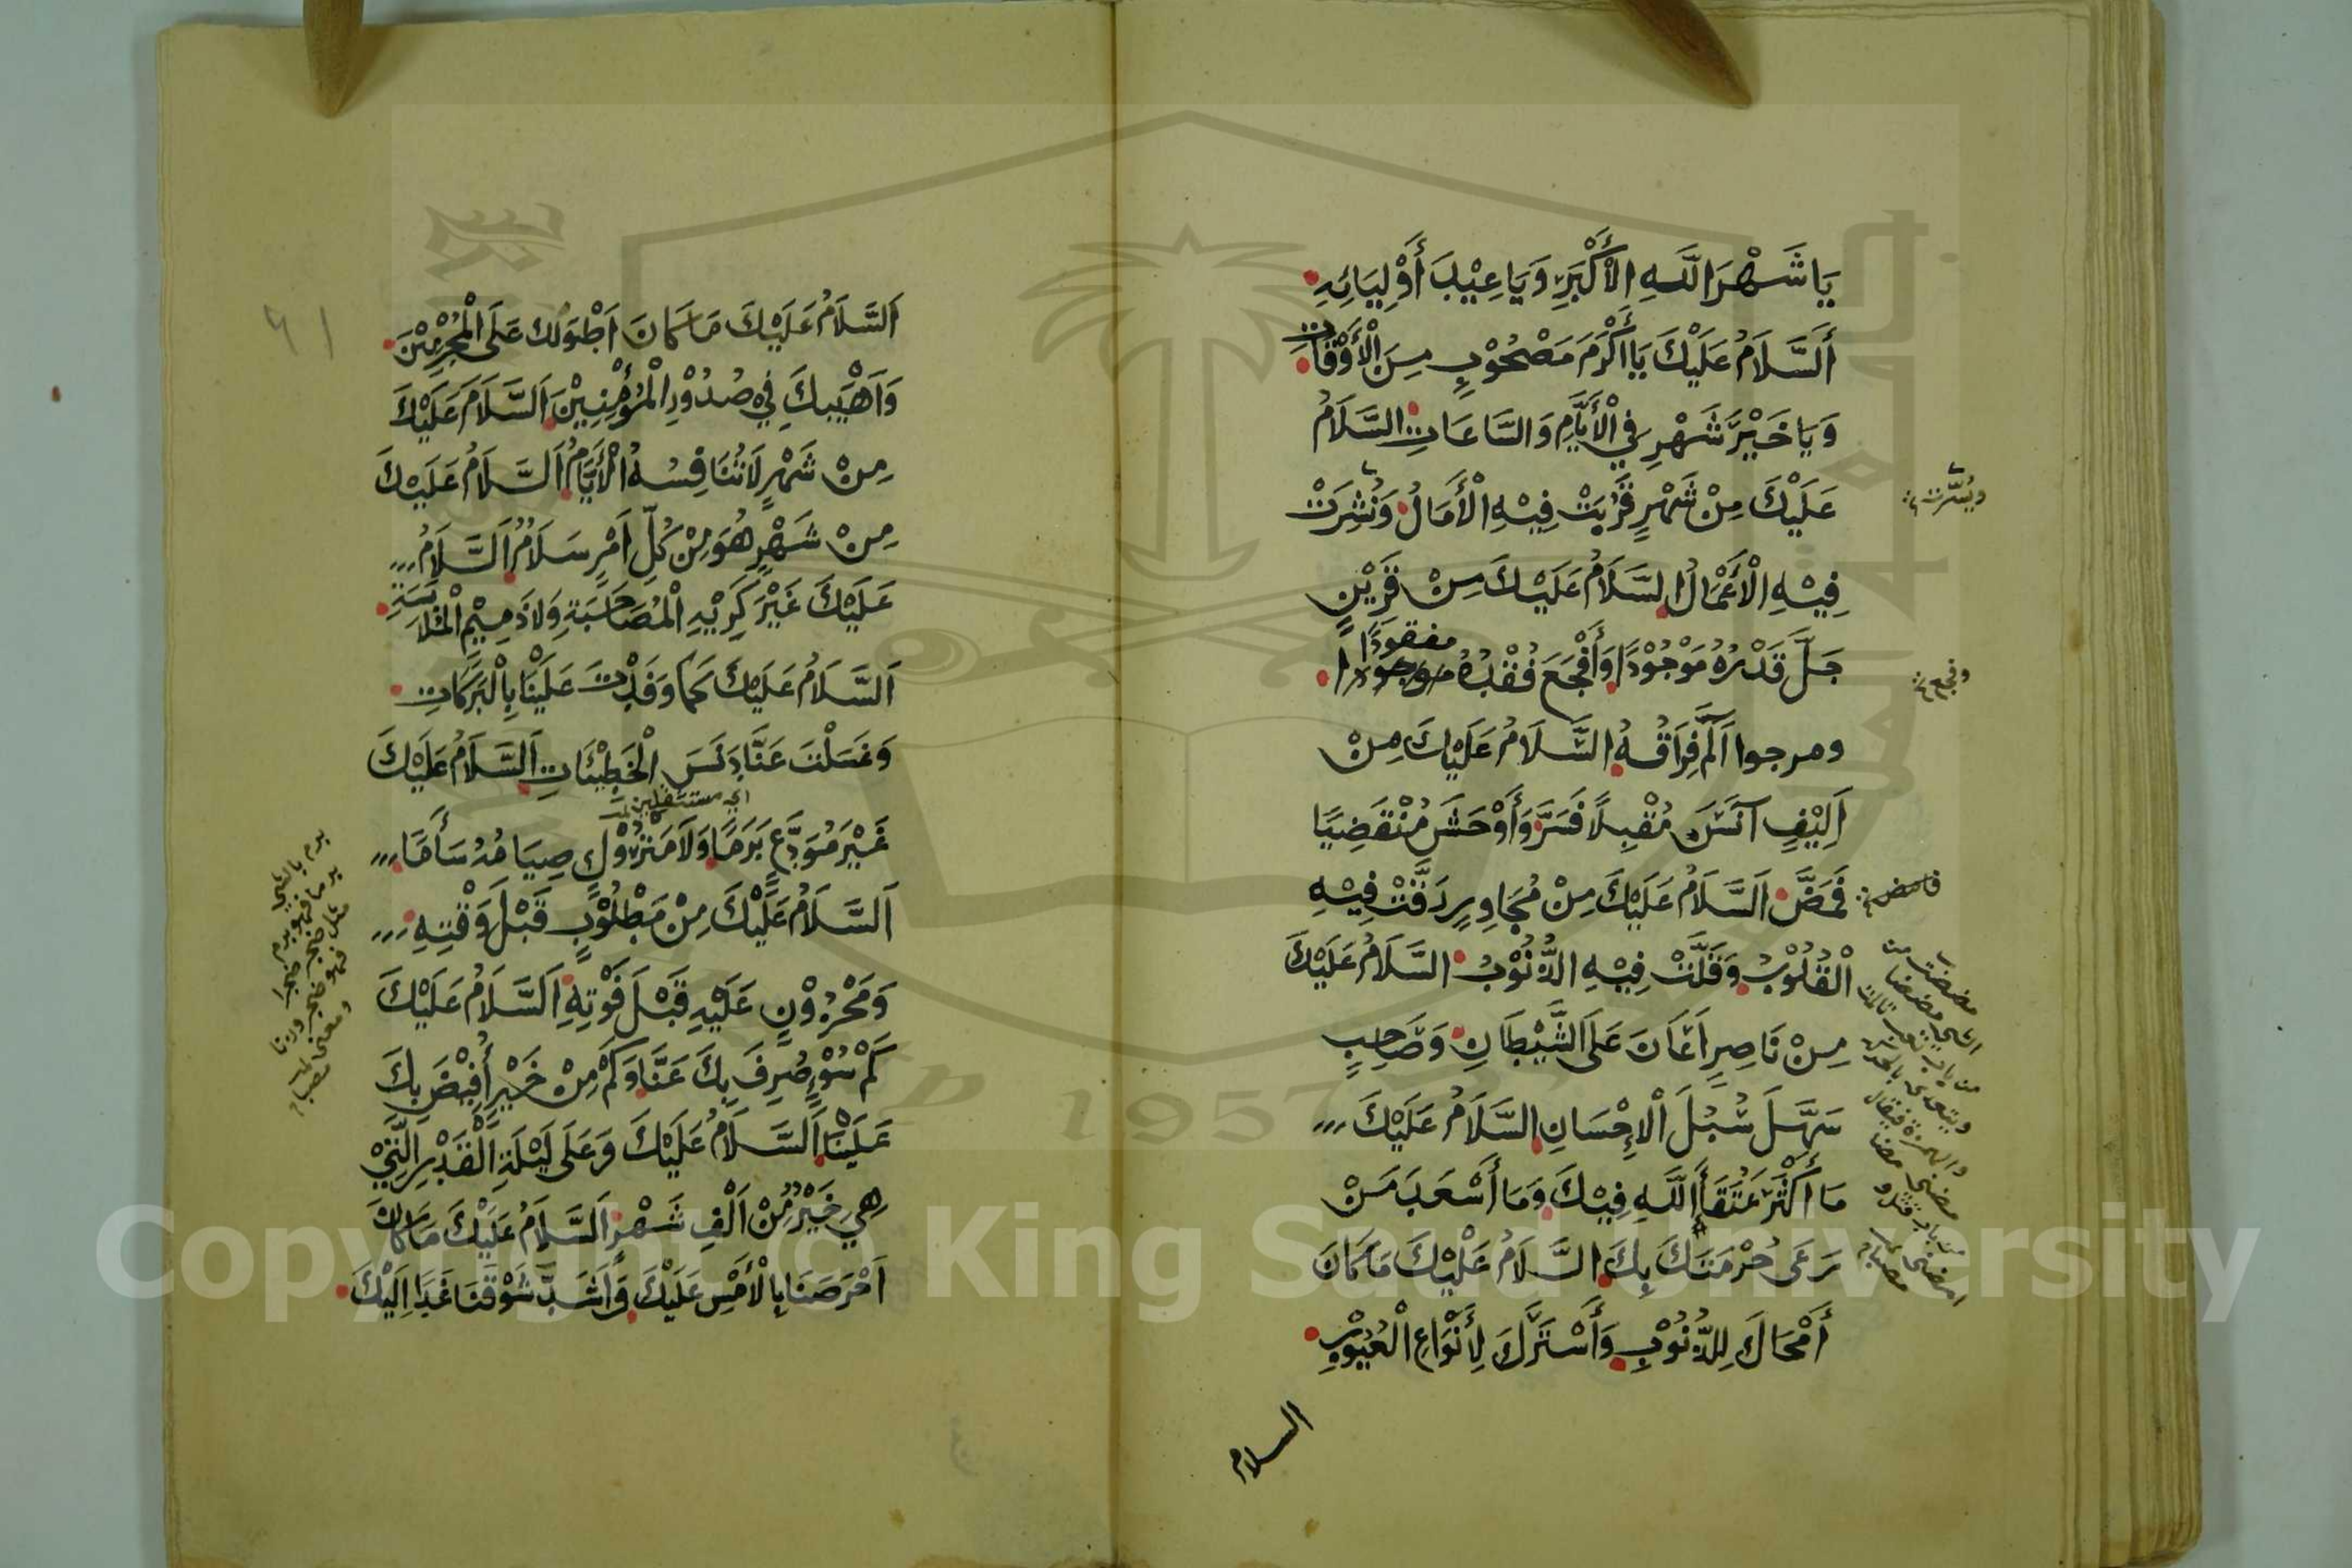 يَا شَهْرَ اللَّهِ الْأَكْبَرِ وَيَا عِيْدَ أَوْلِيَائِهِ
أَلسَّلَامُ عَلَيْكَ يَا أَكْرَمَ مَصْحُوْبٍ مِنَ الْأَوْقَاتِ
وَيَا خَيْرَ شَهْرٍ فِي الْأَيَّامِ وَالسَّاعَاتِ السَّلَامُ
عَلَيْكَ مِنْ شَهْرٍ قَرُبَتْ فِيْهِ الْأَمَالُ وَنُشِرَتْ
ويُسِّرَت
فِيْهِ الْأَعْمَالُ السَّلَامُ عَلَيْكَ مِنْ قَرِيْنٍ
جَلَّ قَدْرُهُ مَوْجُوْدًا وَأَفْجَعَ فُقْدُهُ مفقودًا
وفجع
ومرجوا آلَمَ فِرَاقُهُ السَّلَامُ عَلَيْكَ مِنْ
اَلِيْفٍ آنَسَ مُقْبِلًا فَسَرَّ وَأَوْحَشَ مُنْقَضِيًا
فَمَضَّ اَلسَّلَامُ عَلَيْكَ مِنْ مُجَاوِرٍ رَقَّتْ فِيْهِ
فامض
الْقُلُوْبُ وَقَلَّتْ فِيْهِ الذُّنُوْبُ السَّلَامُ عَلَيْكَ
مِنْ نَاصِرٍ اَعَانَ عَلَى الشَّيْطَانِ وَصَاحِبٍ
سَهَّلَ سُبُلَ الْإِحْسَانِ السَّلَامُ عَلَيْكَ
مَا أَكْثَرَ عُتَقَآءَ اللَّهِ فِيْكَ وَمَا أَسْعَدَ مَنْ
رَعَى حُرْمَتَكَ بِكَ السَّلَامُ عَلَيْكَ مَا كَانَ
أَمْحَاكَ لِلذُّنُوْبِ وَأَسْتَرَكَ لِأَنْوَاعِ الْعُيُوْبِ
السلام
اَلسَّلَامُ عَلَيْكَ مَا كَانَ اَطْوَلَك عَلَى الْمُجْرِمِيْنَ
وَاَهْيَبكَ فِي صُدُوْرِ الْمُؤْمِنِيْنَ اَلسَّلَامُ عَلَيْكَ
مِنْ شَهْرٍ لَا تُنَافِسُهُ الْأَيَّامُ اَلسَّلَامُ عَلَيْكَ
مِنْ شَهْرٍ هُوَ مِنْ كُلِّ اَمْرٍ سَلَامٌ اَلسَّلَامُ
عَلَيْكَ غَيْرَ كَرِيْهِ الْمُصَاحَبَةِ وَلَا ذَمِيْمِ الْمُلَابَسَةِ
اَلسَّلَامُ عَلَيْكَ كَمَا وَفَدْتَ عَلَيْنَا بِالْبَرَكَاتِ
وَغَسَلْتَ عَنَّا دَنَسَ الْخَطِيْئَاتِ اَلسَّلَامُ عَلَيْكَ
غَيْرَ مُوَدَّعٍ بَرَمًا وَلَا مَتْرُوْكٍ صِيَامُهُ سَأَمًا
اَلسَّلَامُ عَلَيْكَ مِنْ مَطْلُوْبٍ قَبْلَ وَقْتِهِ
وَمَحْزُوْنٍ عَلَيْهِ قَبْلَ فَوْتِهِ اَلسَّلَامُ عَلَيْكَ
كَمْ سُوْءٍ صُرِفَ بِكَ عَنَّا وَكَمْ مِنْ خَيْرٍ أُفِيْضَ بِكَ
عَلَيْنَا اَلسَّلَامُ عَلَيْكَ وَعَلَى لَيْلَةِ الْقَدْرِ الَّتِيْ
هِيَ خَيْرٌ مِنْ اَلْفِ شَهْرٍ اَلسَّلَامُ عَلَيْكَ مَا كَانَ
اَحْرَصَنَا بِالْأَمْسِ عَلَيْكَ وَاَشَدَّ شَوْقَنَا غَدًا اِلَيْكَ
Copyright © King Saud University
1957